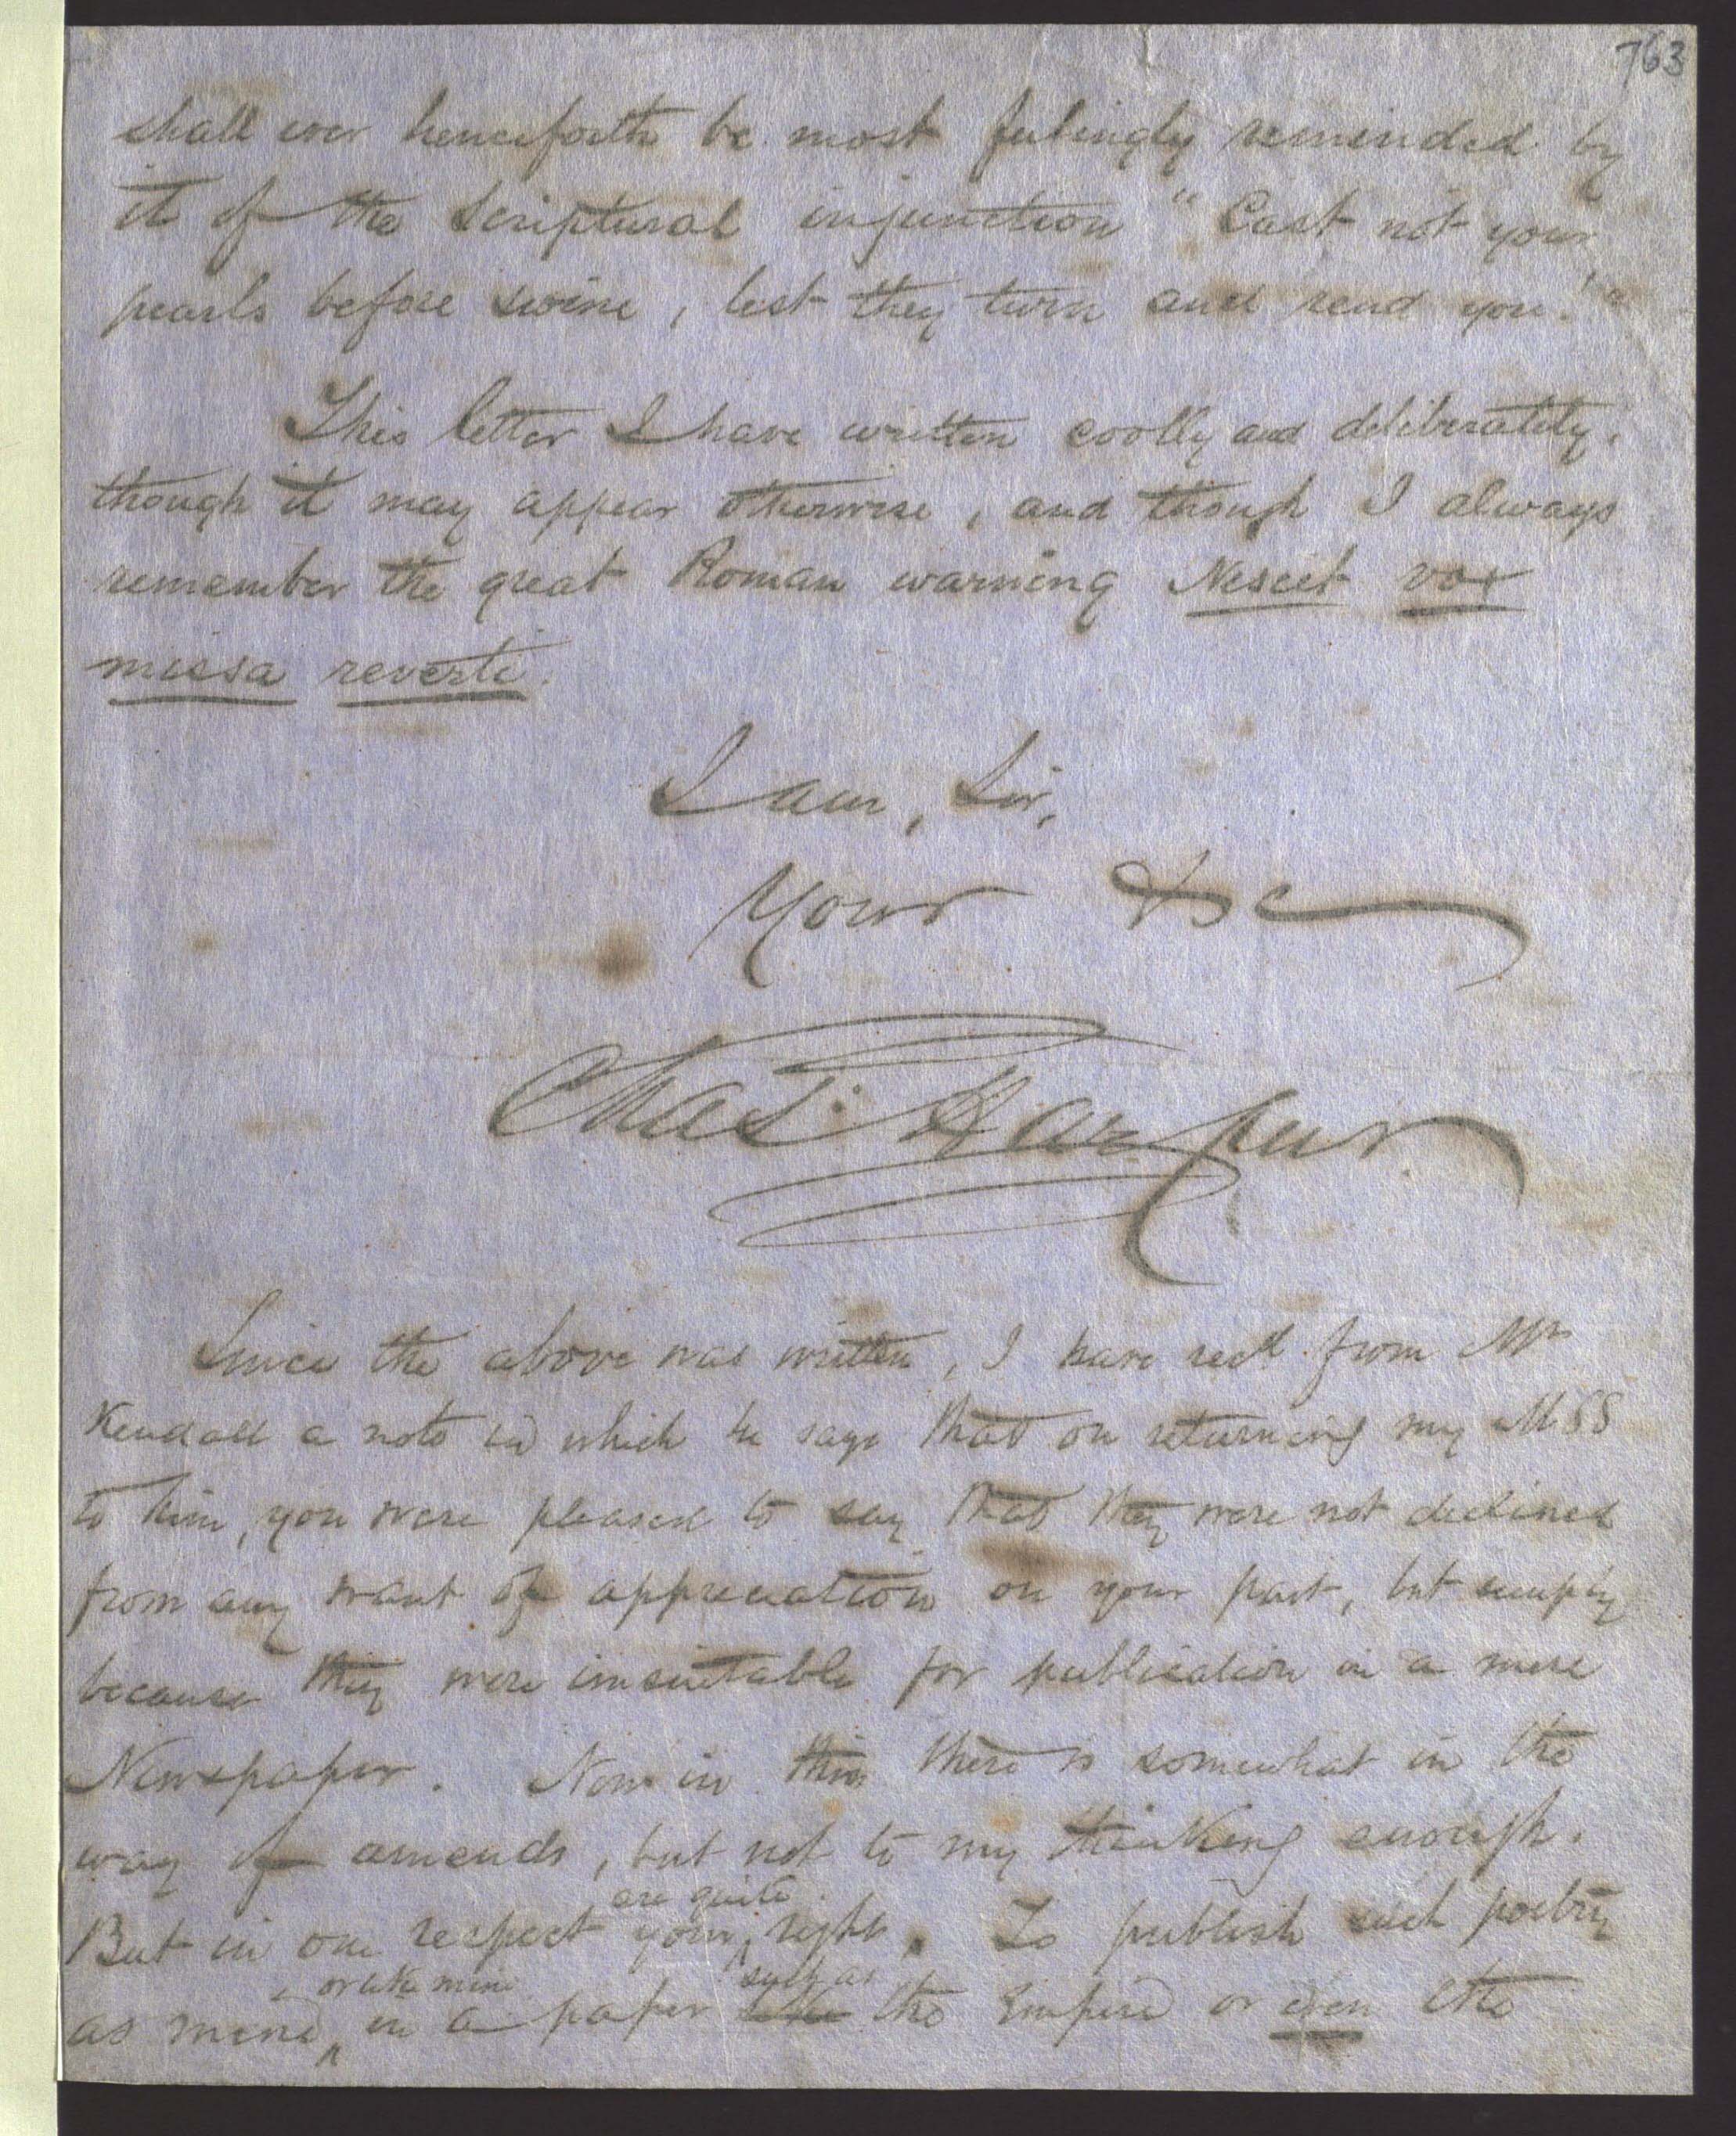 763
shall ever henceforth be most feelingly reminded by
it of the Scriptural injunction "Cast not your
pearls before swine, lest they turn and rend you!"
This letter I have written coolly and deliberately,
though it may appear otherwise, and though I always
remember the great Roman warning Nescit vox
missa reverti.
I am, Sir,
Yours &c
Chas. Harpur
Since the above was written, I have recd. from Mr
Kendall a note in which he says that on returning my MSS
to him, you were pleased to say that they were not declined
from any want of appreciation on your part, but simply
because they were unsuitable for publication in a mere
Newspaper. Now in this there is somewhat in the
way of amends, but not to my thinking enough.
are quite
But in one respect you right. To publish such poetry
or like mine such as
as mine, in a paper the Empire or even the